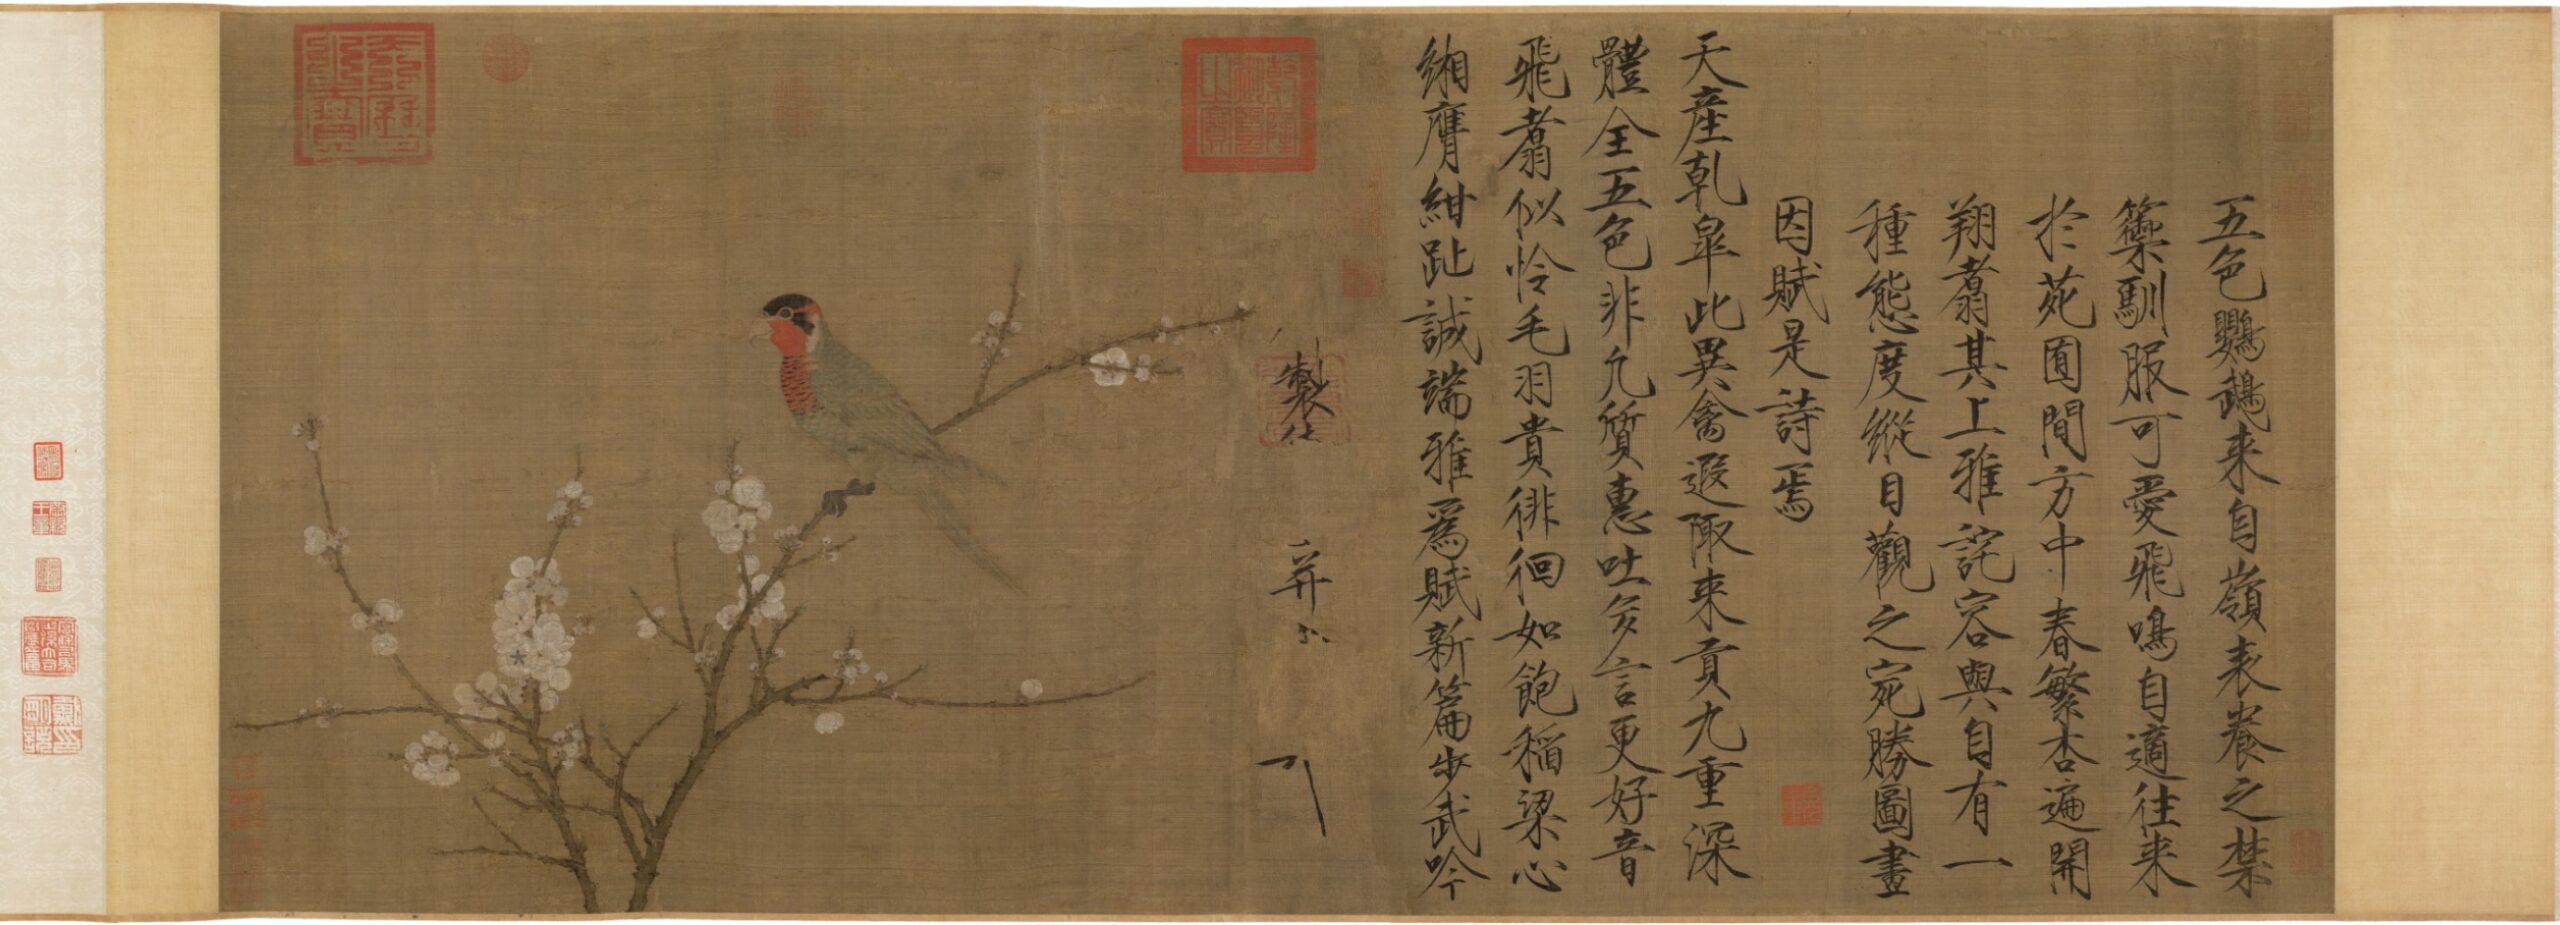 五色鸚鵡来自嶺表養之禁
籞馴服可愛飛鳴自適往来
於苑囿間方中春繁杏遍開
翔翥其上雅詫容與自有一
種態度縱目觀之宛勝圖畫
因賦是詩焉
天産乾皐此異禽遐陬来貢九重深
體全五色非凡質惠吐多言更好音
飛翥似怜毛羽貴徘徊如飽稲粱心
緗膺紺趾誠端雅爲賦新篇步武吟
製
乾隆御覽之寶